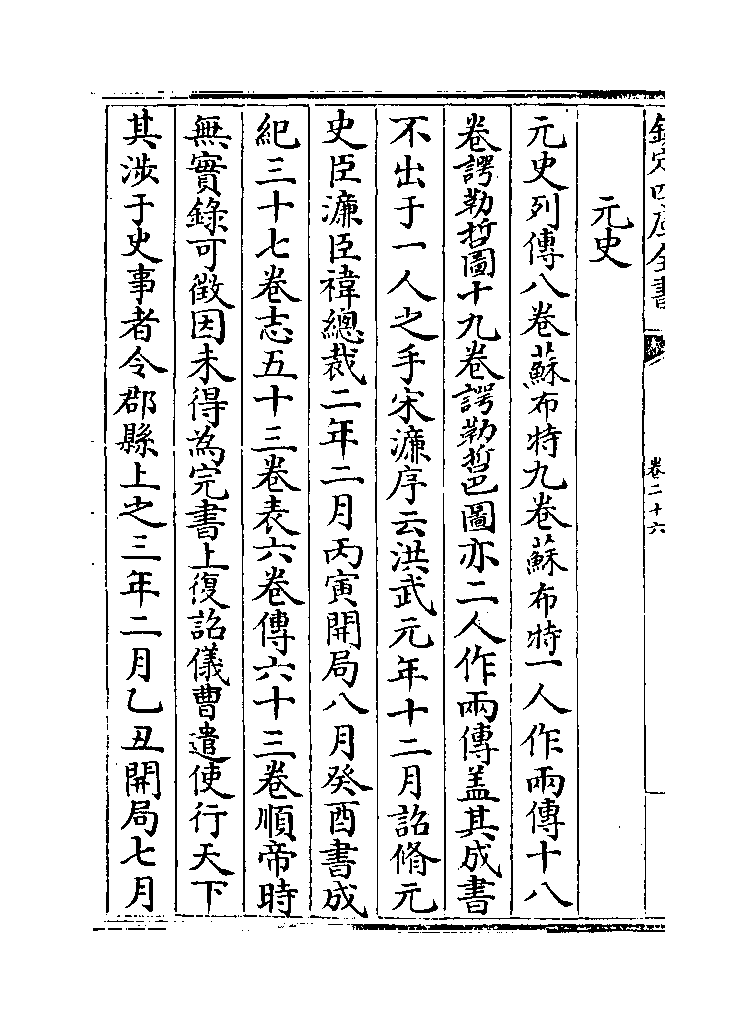 欽定四庫全書
卷二十六
元史
元史列傳八卷蘇布特九卷蘇布特一人作兩傳十八
卷諤勒哲圖十九卷諤勒哲巴圖亦二人作兩傳盖其成書
不出于一人之手宋濂序云洪武元年十二月詔脩元
史臣濂臣禕總裁二年二月丙寅開局八月癸酉書成
紀三十七卷志五十三卷表六卷傳六十三卷順帝時
無實錄可徵因未得為完書上復詔儀曹遣使行天下
其涉于史事者令郡縣上之三年二月乙丑開局七月